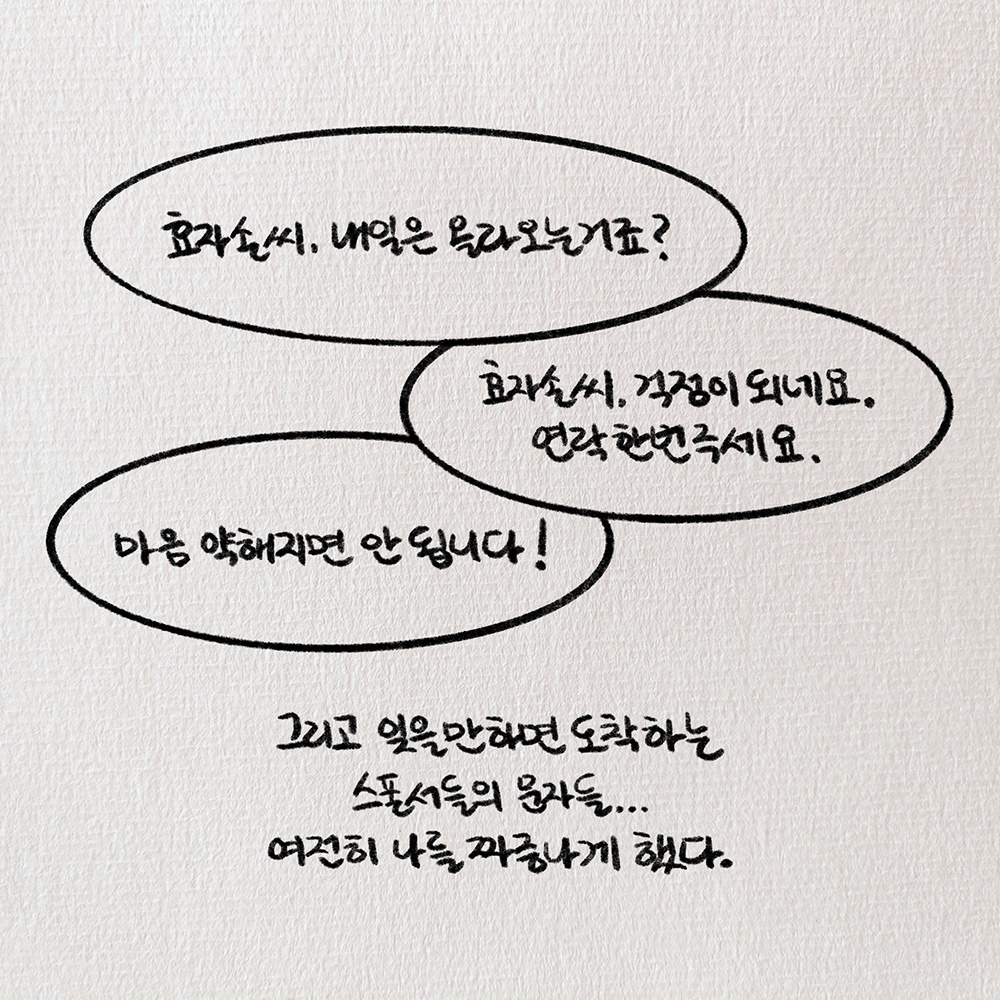 효자손씨, 내일은 올라오는거죠?
효자손씨, 걱정이 되네요.
연락 한번 주세요.
마음 약해지면 안 됩니다!
그리고 잊을만하면 도착하는
스폰서들의 문자들...
여전히 나를 짜증나게 했다.